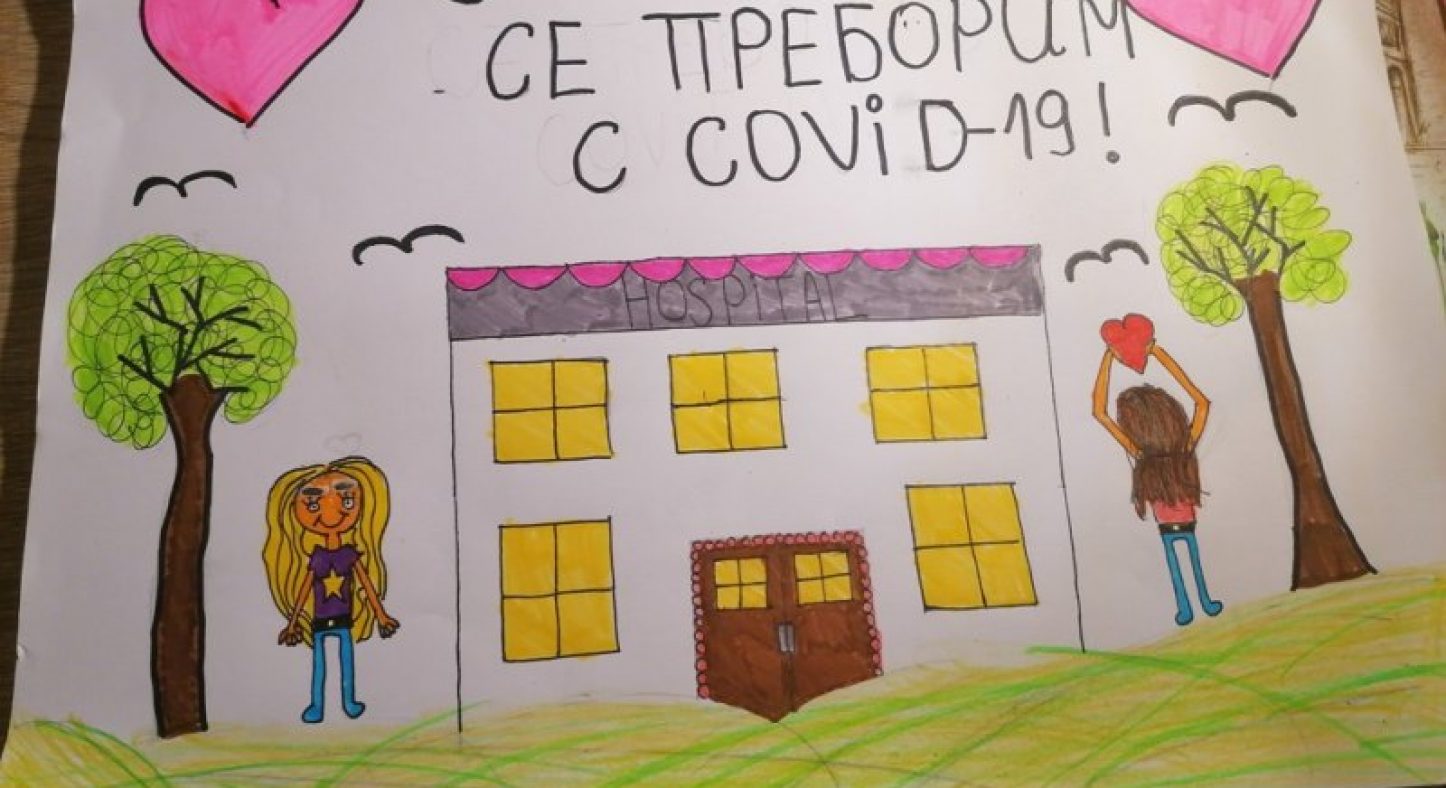 СЕ ПРЕБОРИМ
С COViD-19!
HOSPiTAL